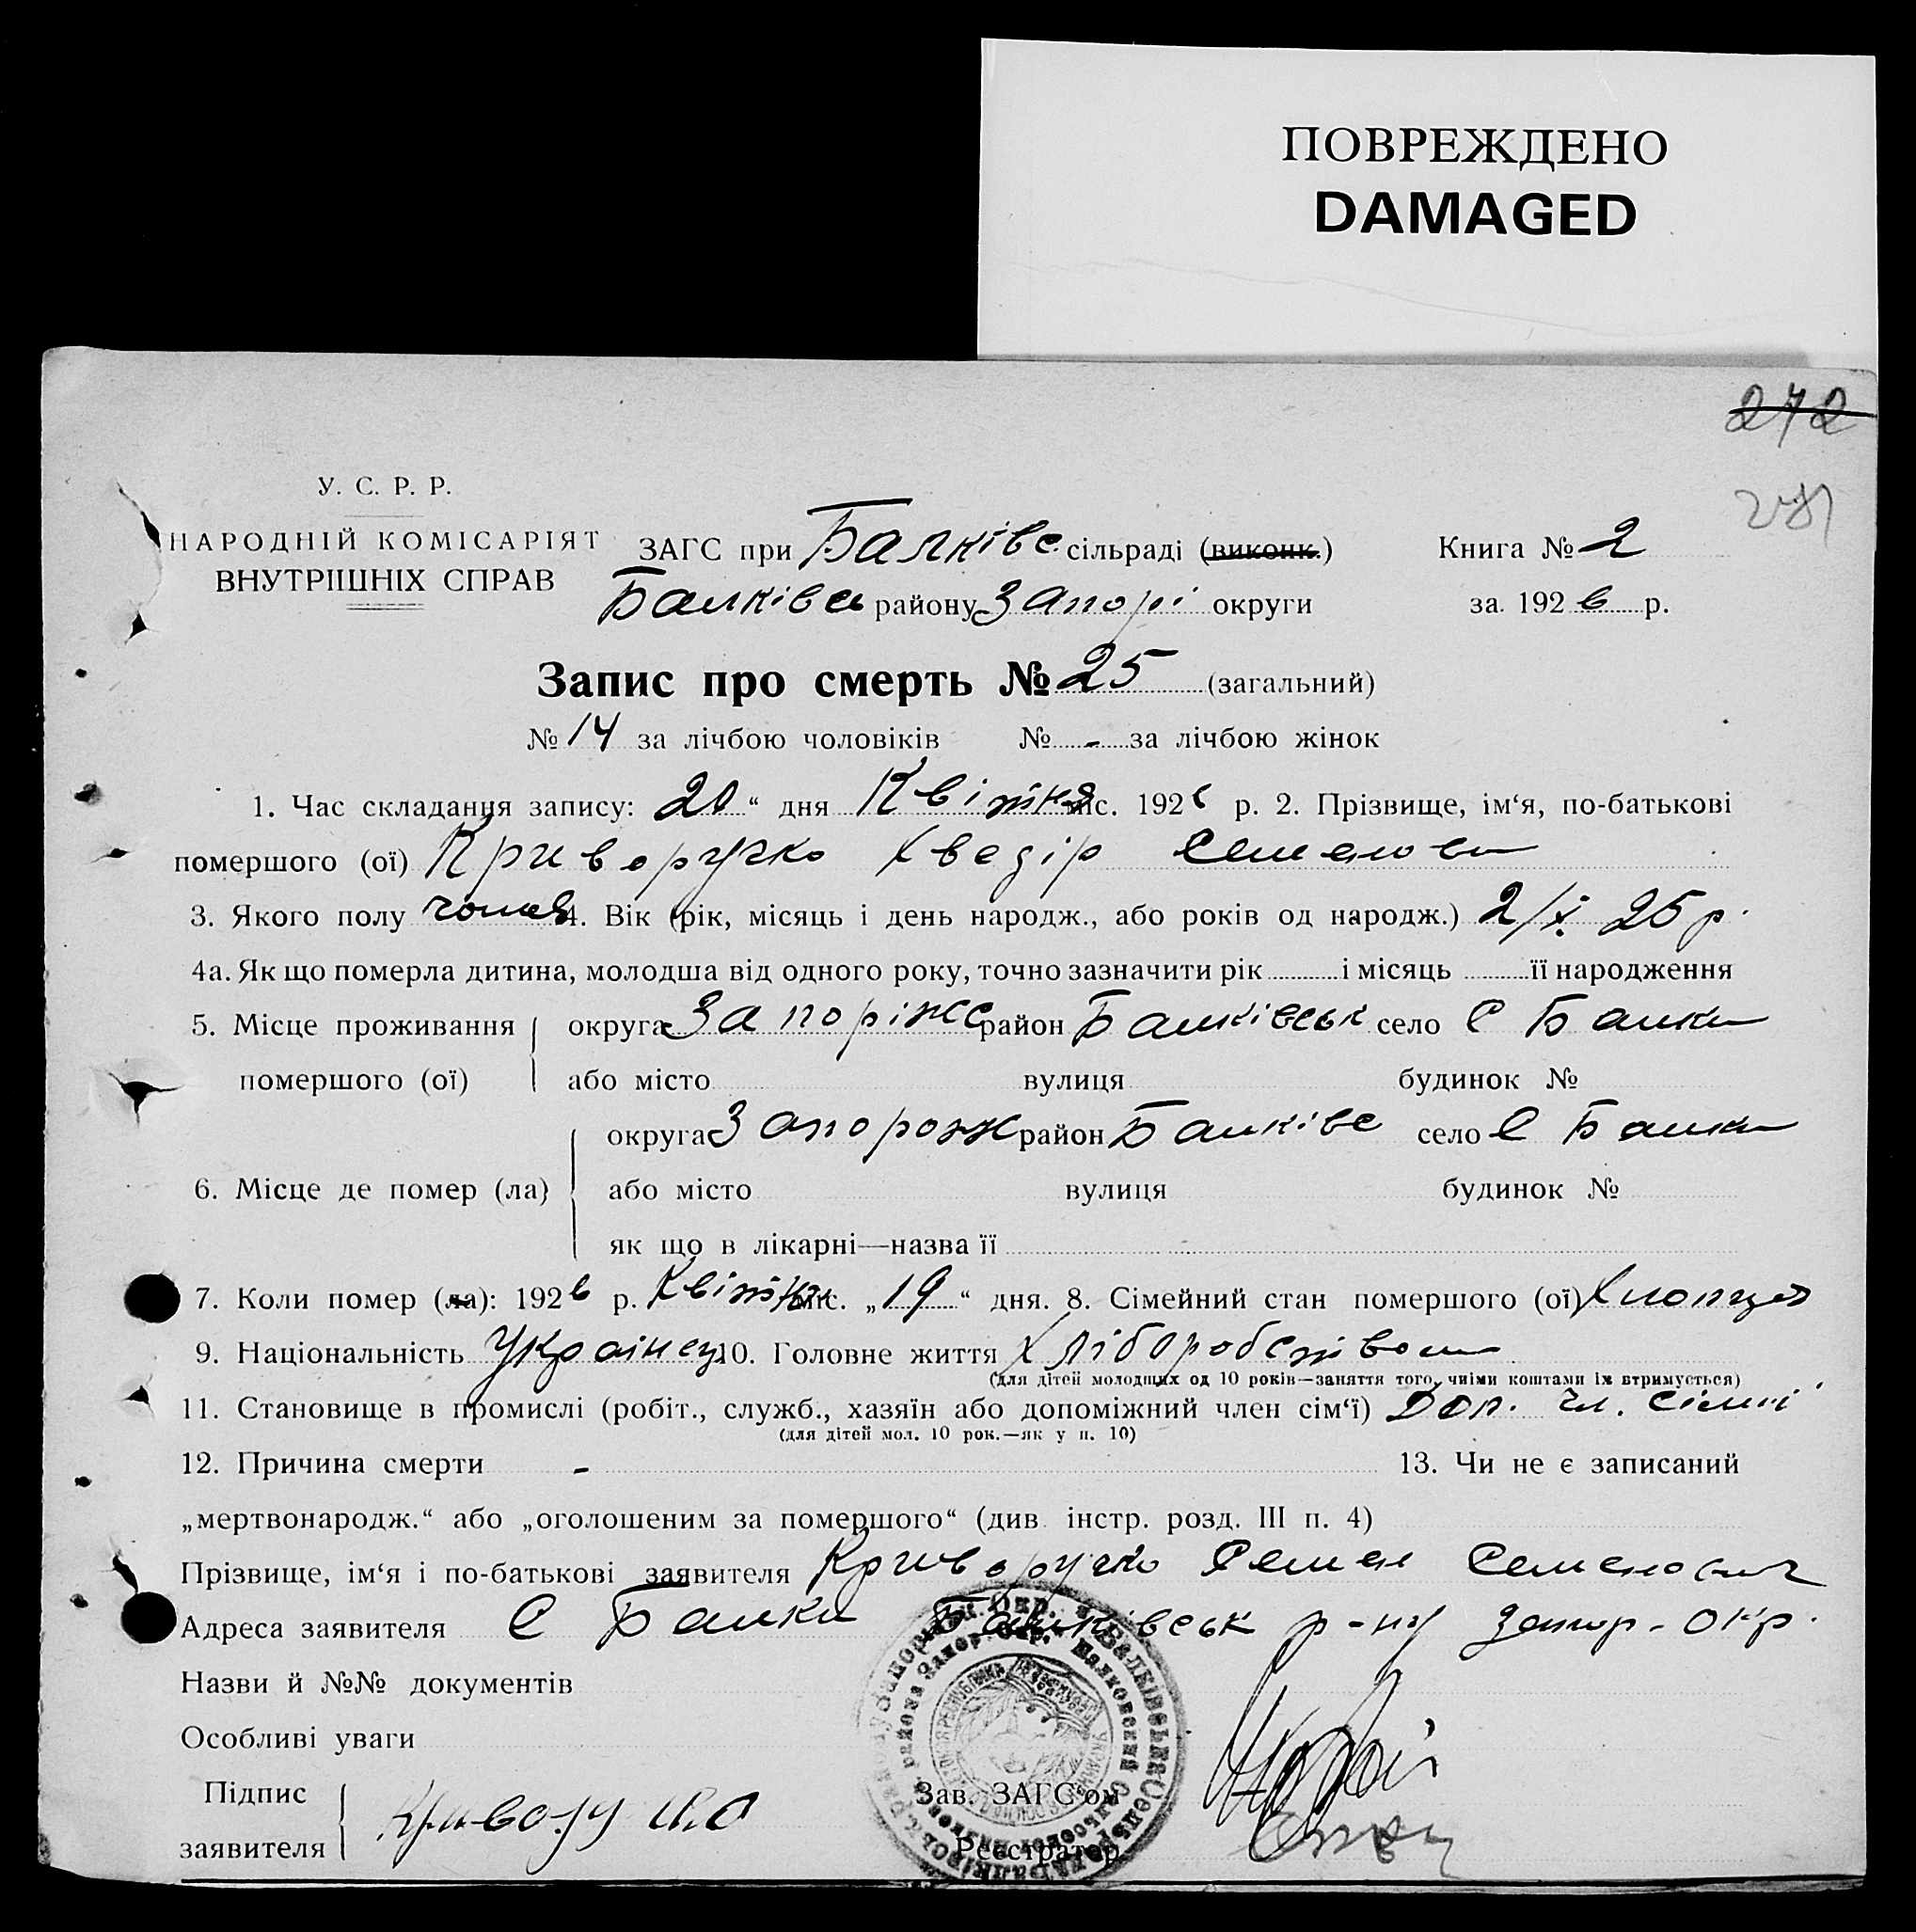 ПОВРЕЖДЕНО
DAMAGED
272
У. С. Р. Р.
НАРОДНІЙ КОМІСАРІЯТ
ВНУТРІШНІХ СПРАВ
ЗАГС при Балківс. сільраді (виконк.)
Книга № 2
Балківсь району Запорі округи
за 1926 р.
Запис про смерть № 25 (загальний)
№ 14 за лічбою чоловіків № - за лічбою жінок
1. Час складання запису: 20 “ дня Квітня міс. 1926 р. 2. Прізвище, ім‘я, по-батькові
помершого (ої) Криворучко Хведір Семенови
3. Якого полу чолов 4. Вік (рік, місяць і день народж., або років од народж.) 2/X 25 р.
4а. Як що померла дитина, молодша від одного року, точно зазначити рік і місяць її народження
5. Місце проживання округа Запоріжс район Балківськ село С Балки
помершого (ої) або місто вулиця будинок №
округа Запорож район Балківс село С Балки
6. Місце де помер (ла) або місто вулиця будинок №
як що в лікарні—назва її
7. Коли помер (ла): 1926 р. Квітня міс. „ 19 “ дня. 8. Сімейний стан помершого (ої) Хлопець
9. Національність Українец 10. Головне життя Хліборобством
(для дітей молодших од 10 років—заняття того, чиїми коштами їх втримується)
11. Становище в промислі (робіт., служб., хазяїн або допоміжний член сім‘ї) Доп. чл. сімї
(для дітей мол. 10 рок.—як у п. 10)
12. Причина смерти - 13. Чи не є записаний
„мертвонародж.“ або „оголошеним за помершого“ (див. інстр. розд. III п. 4)
Прізвище, ім‘я і по-батькові заявителя Криворучко Семен Семенович
Адреса заявителя С Балки Балківськ р-ну Запор. окр.
Назви й №№ документів
Особливі уваги
Підпис
заявителя
Криворучко
Зав. ЗАГС‘ом
Реєстратор